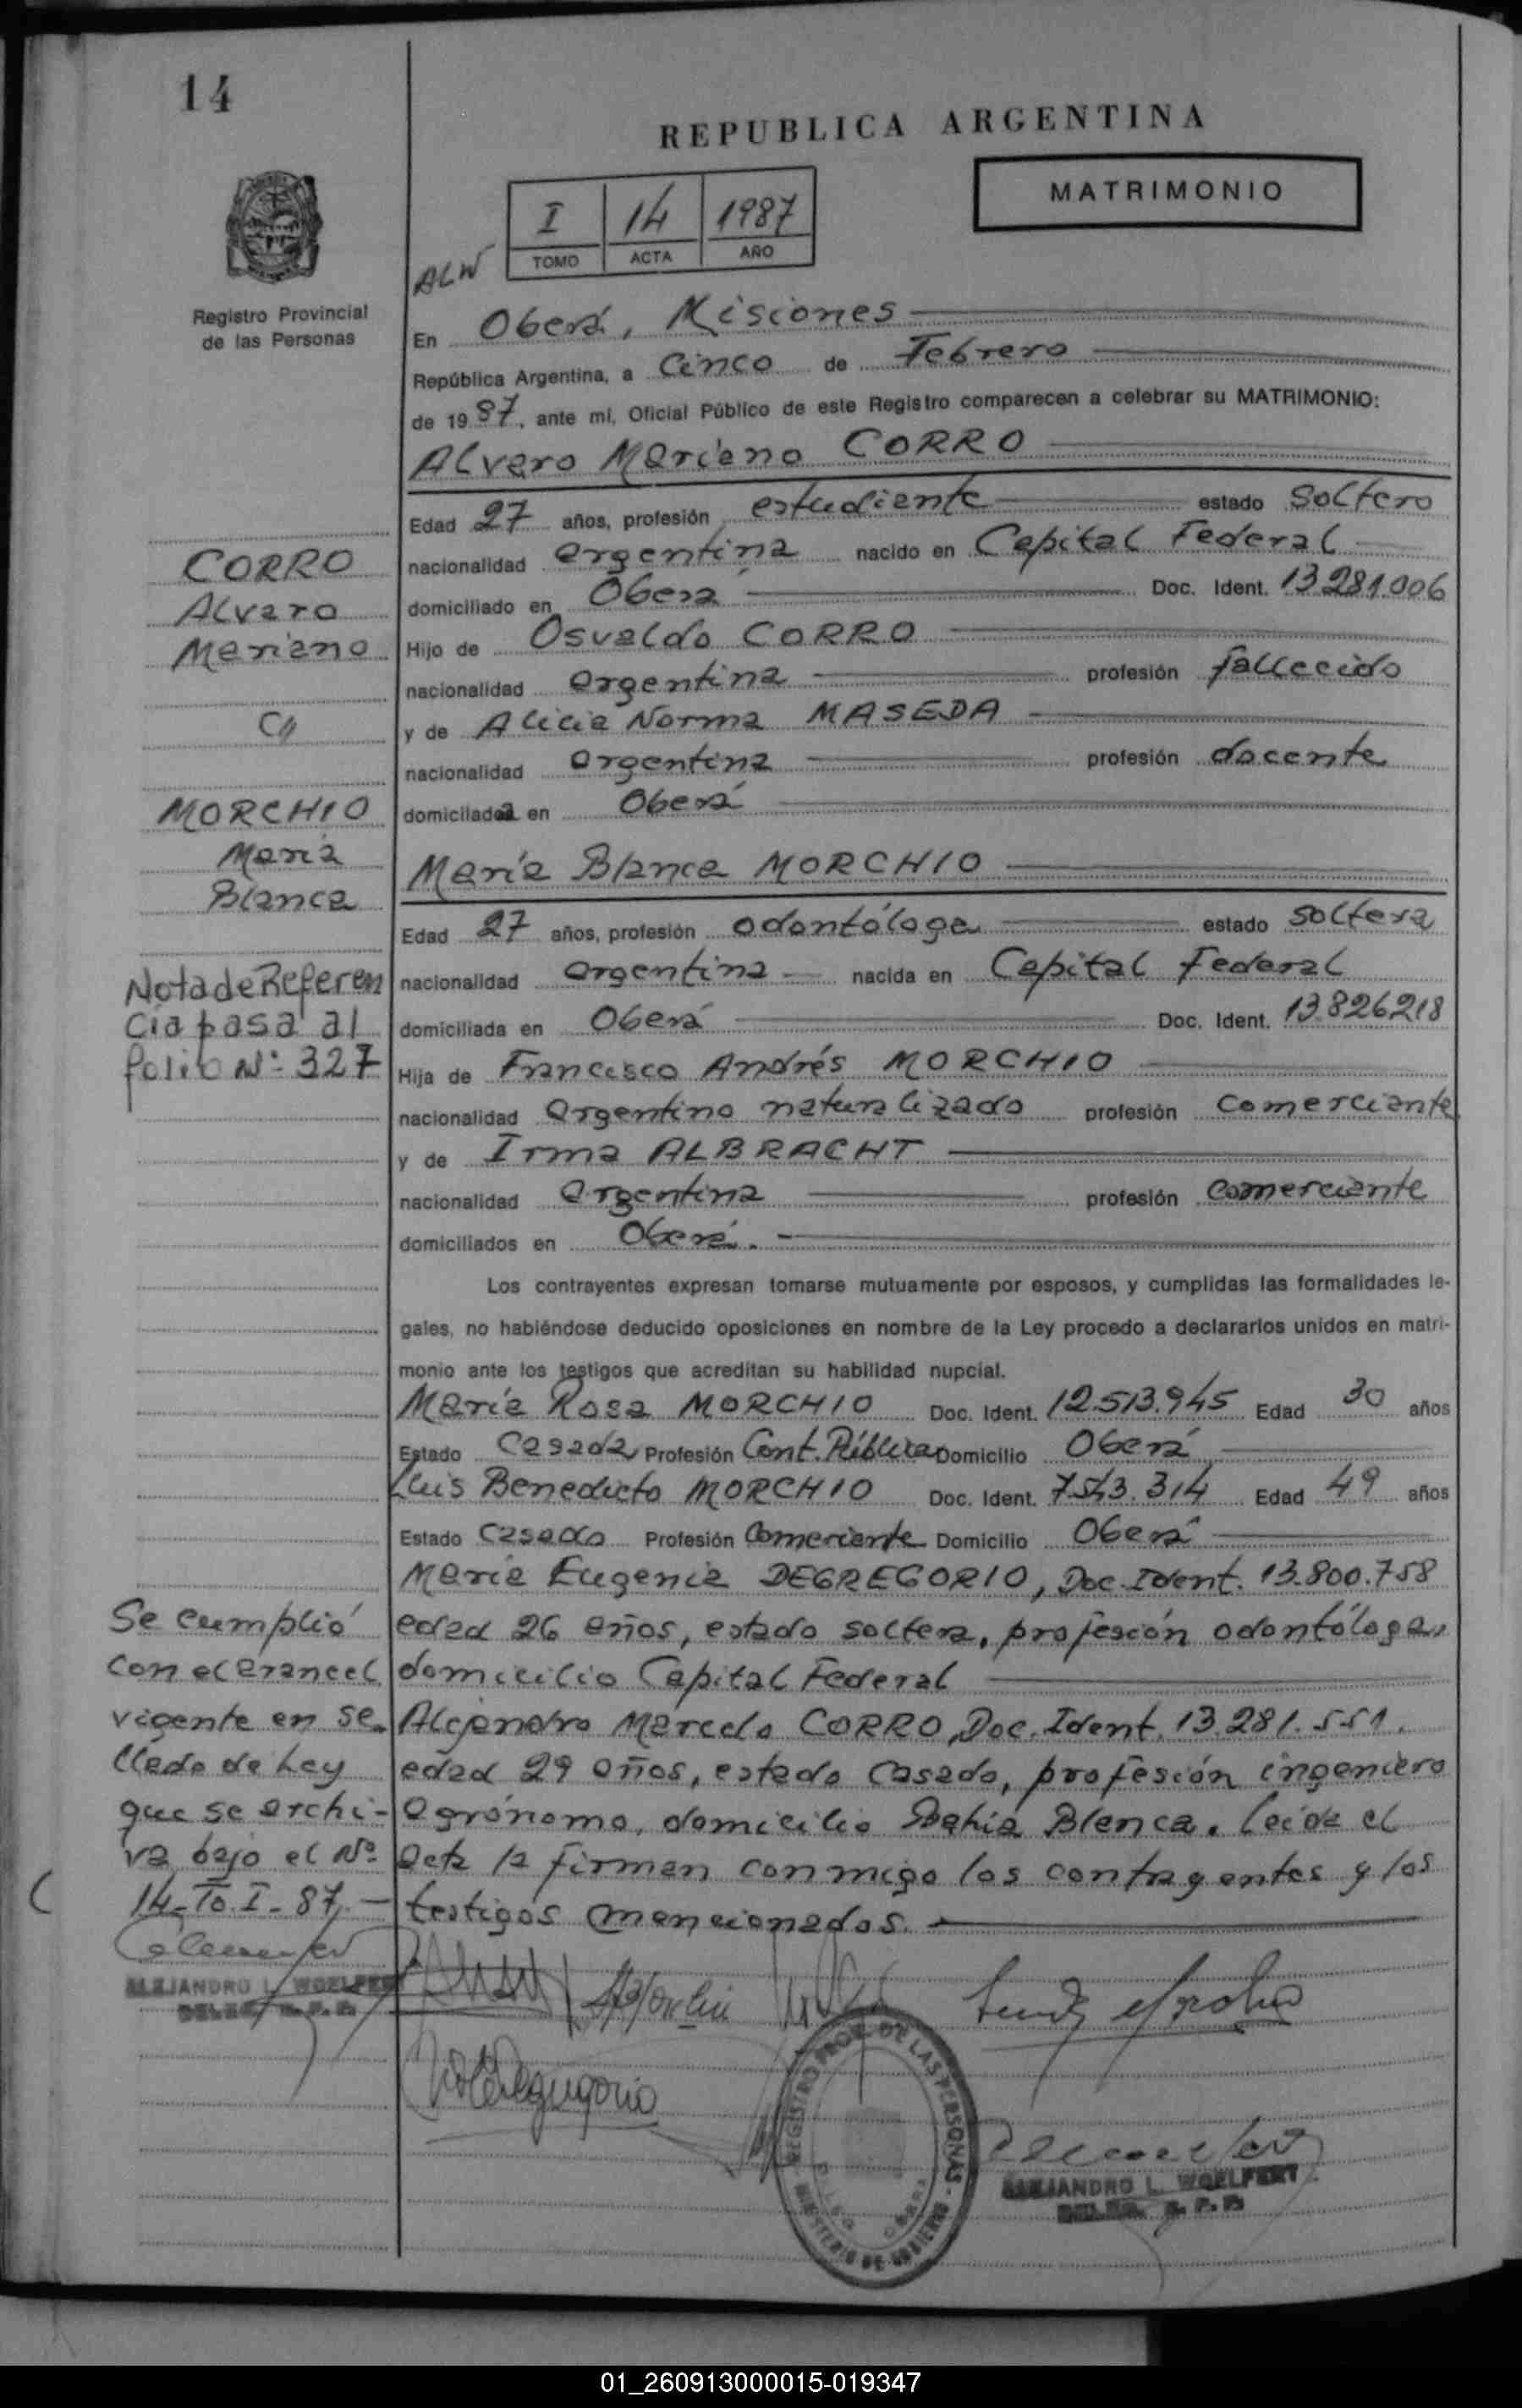 14
REPUBLICA ARGENTINA
MATRIMONIO
I 14 1987
TOMO ACTA AÑO
ALW
Registro Provincial
de las Personas
En Oberá, Misiones
República Argentina, a Cinco de Febrero
de 1987, ante mí, Oficial Público de este Registro comparecen a celebrar su MATRIMONIO:
Alvaro Mariano CORRO
Edad 27 años, profesión estudiante estado soltero
nacionalidad argentina nacido en Capital Federal
domiciliado en Oberá Doc. Ident. 13.281.006
Hijo de Osvaldo CORRO
nacionalidad argentina profesión fallecido
y de Alicia Norma MASEDA
nacionalidad argentina profesión docente
domiciliada en Oberá
María Blanca MORCHIO
Edad 27 años, profesión odontóloga estado soltera
nacionalidad argentina nacida en Capital Federal
domiciliada en Oberá Doc. Ident. 13.826218
Hija de Francisco Andrés MORCHIO
nacionalidad argentino naturalizado profesión comerciante
y de Irma ALBRACHT
nacionalidad argentina profesión comerciante
domiciliados en Oberá.
Los contrayentes expresan tomarse mutuamente por esposos, y cumplidas las formalidades le-
gales, no habiéndose deducido oposiciones en nombre de la Ley procedo a declararlos unidos en matri-
monio ante los testigos que acreditan su habilidad nupcial.
María Rosa MORCHIO Doc. Ident. 12.513.945 Edad 30 años
Estado Casada Profesión Cont. Pública Domicilio Oberá
Luis Benedicto MORCHIO Doc. Ident. 7.543.314 Edad 49 años
Estado Casado Profesión Comerciante Domicilio Oberá
María Eugenia DEGREGORIO, Doc. Ident. 13.800.758
edad 26 años, estado soltera, profesión odontóloga,
domicilio Capital Federal
Alejandro Marcelo CORRO, Doc. Ident. 13.281.551.
edad 29 años, estado casado, profesión ingeniero
agrónomo, domicilio Bahía Blanca. Leída el
acta la firman conmigo los contrayentes y los
testigos mencionados.
CORRO
Alvaro
Mariano
C//
MORCHIO
María
Blanca
Nota de Referen
cia pasa al
folio Nº 327
Se cumplió
con el arancel
vigente en se-
llado de Ley
que se archi-
va bajo el Nº
14-Tº.I-87.-
ALEJANDRO L. WOELFERT
DELEG. R. P. P.
REGISTRO PROV. DE LAS PERSONAS
MINISTERIO DE GOBIERNO
ALEJANDRO L. WOELFERT
DELEG. R. P. P.
01_260913000015-019347